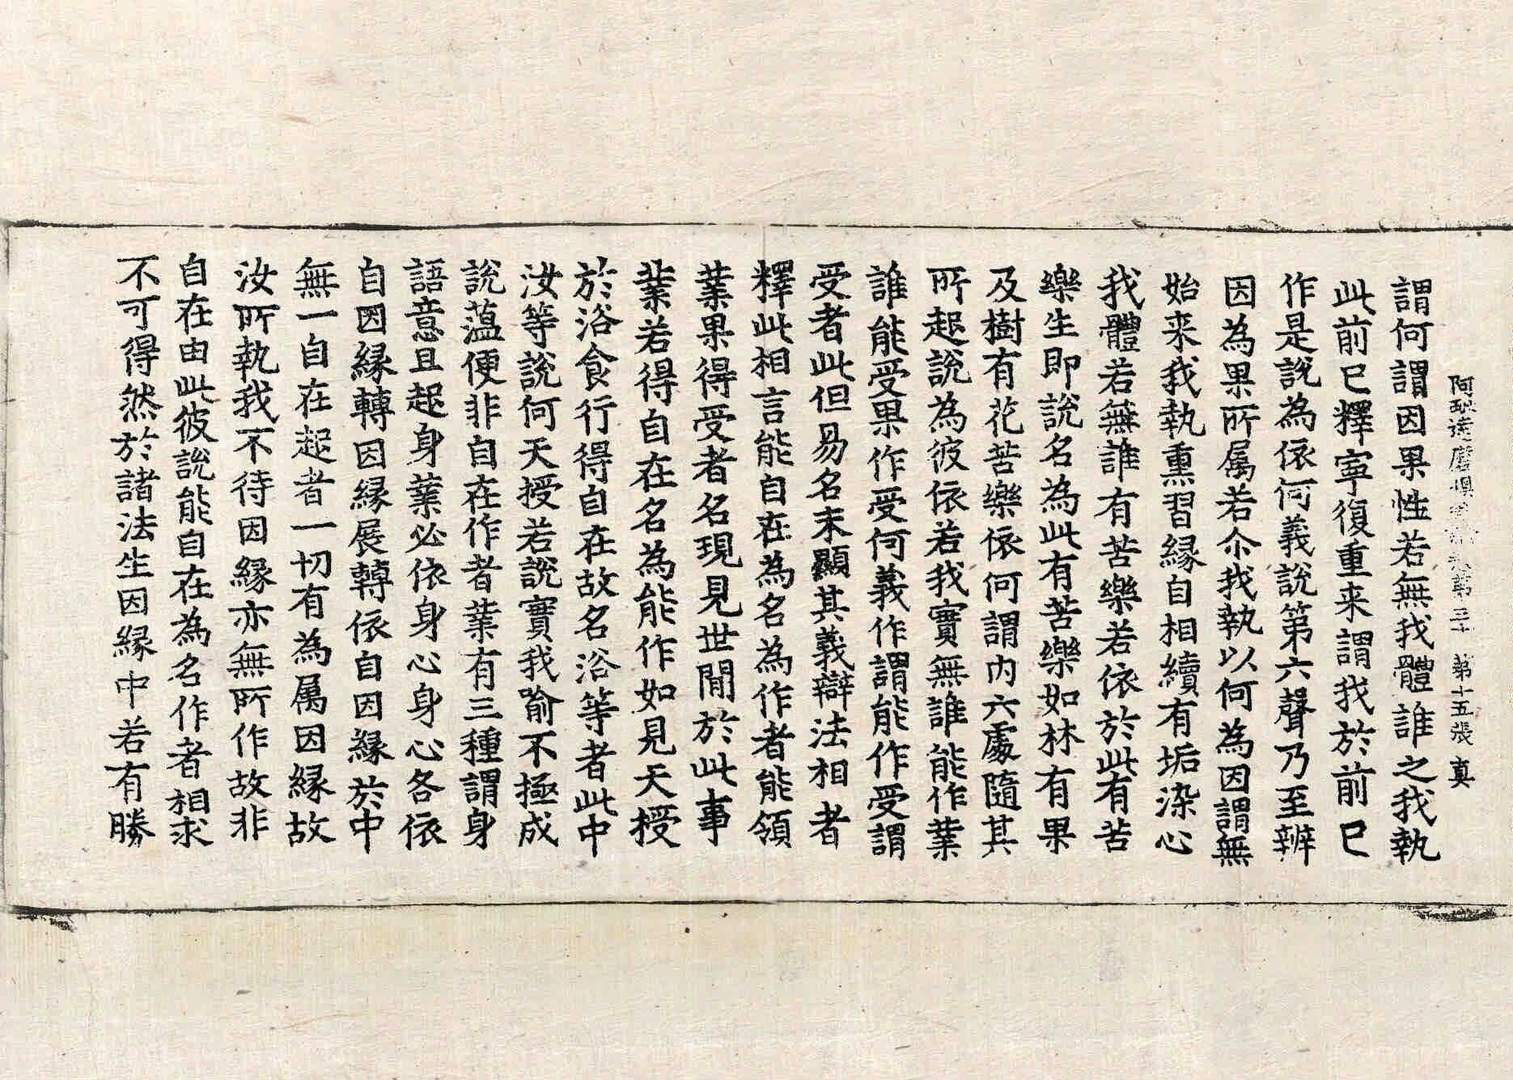 阿毗達磨俱舍論卷第三十 第十五張 真
謂何謂因果性若無我體誰之我執
此前已釋寧復重来謂我於前已
作是說為依何義說第六聲乃至辨
因為果所属若尒我執以何為因謂無
始来我執熏習縁自相續有垢染心
我體若無誰有苦樂若依於此有苦
樂生即說名為此有苦樂如林有果
及樹有花苦樂依何謂内六處隨其
所起說為彼依若我實無誰能作業
誰能受果作受何義作謂能作受謂
受者此但易名未顯其義辯法相者
釋此相言能自在為名為作者能領
業果得受者名現見世間於此事
業若得自在名為能作如見天授
於浴食行得自在故名浴等者此中
汝等說何天授若說實我喻不極成
說蕰便非自在作者業有三種謂身
語意且起身業必依身心身心各依
自因縁轉因縁展轉依自因縁於中
無一自在起者一切有為属因縁故
汝所執我不待因縁亦無所作故非
自在由此彼說能自在為名作者相求
不可得然於諸法生因縁中若有勝